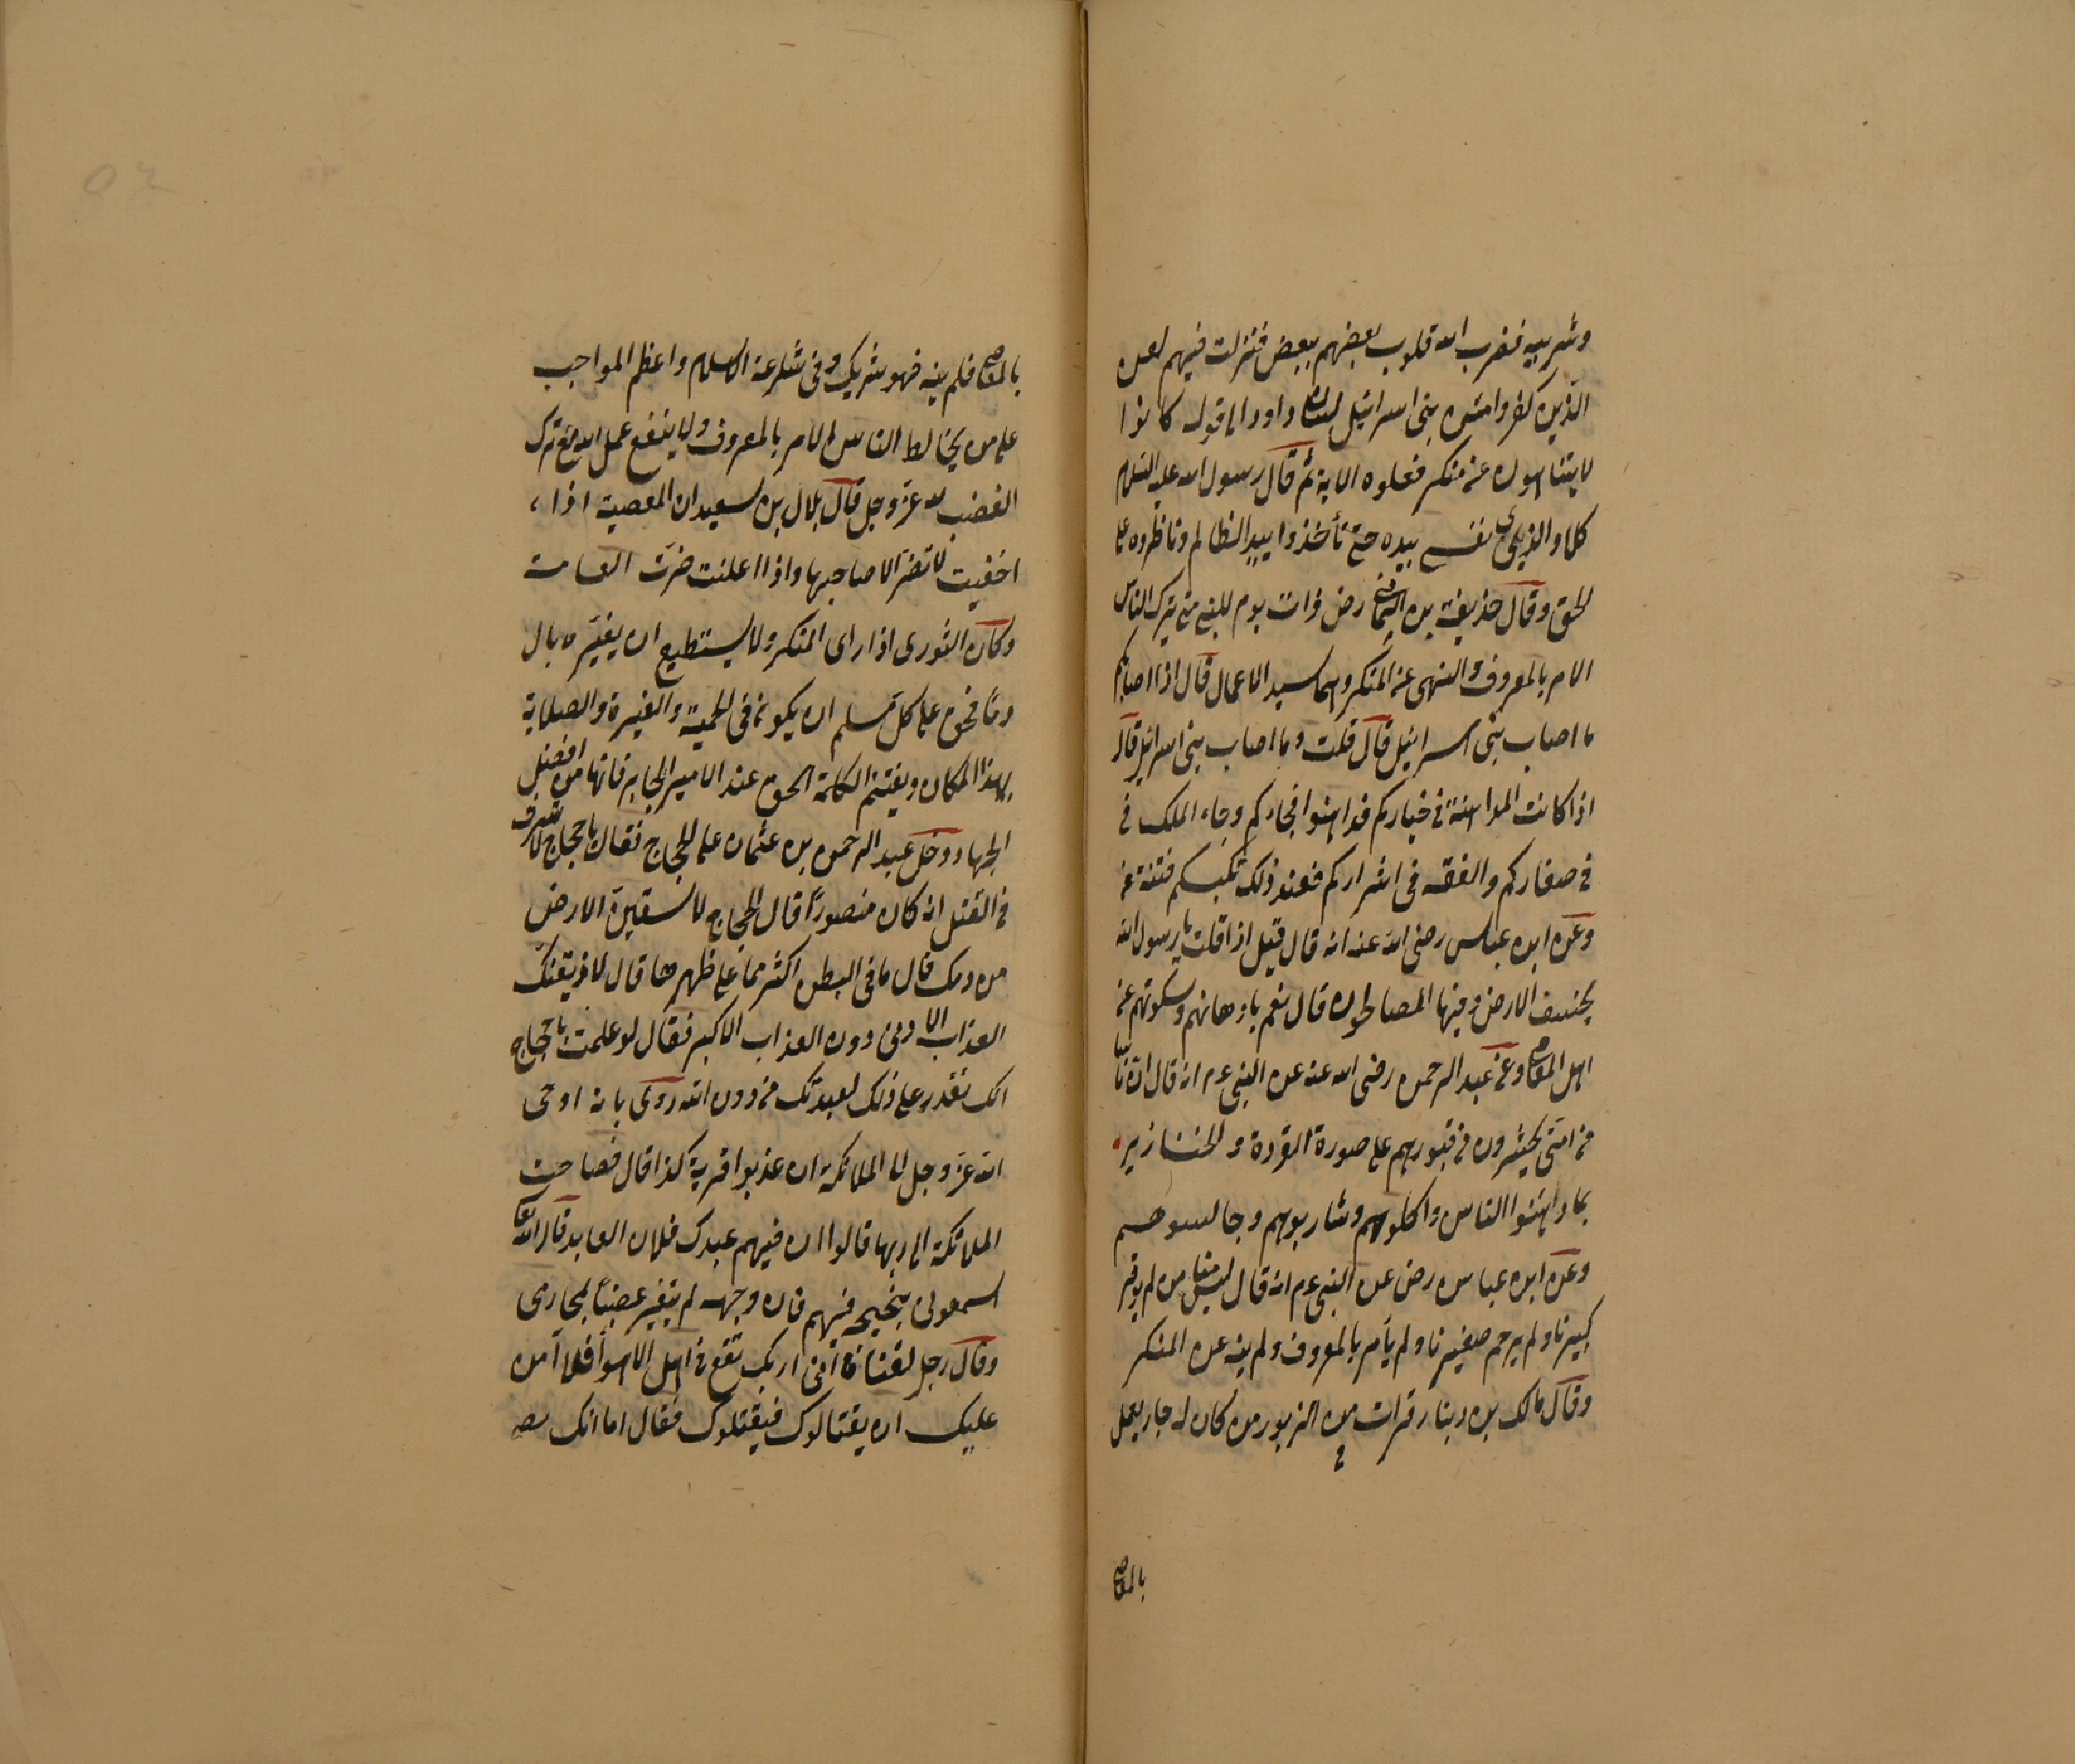 وشريبه فضرب الله قلوب بعضهم ببعض فنزلت فيهم لعن
الذين كفروا من بنى اسرائيل على لسان داود الى قوله كانوا
لا يتناهون عن منكر فعلوه الاية ثم قال رسول الله عليه السلم
كلا والذى نفسى بيده حتى تأخذوا بيد الظالم وناظروه على
الحق وقال حذيفة بن اليمان رض ذات يوم للنبى متى يترك الناس
الامر بالمعروف والنهى عن المنكر وهما سيد الاعمال قال اذا اصابكم
ما اصاب بنى اسرائيل قال قلت وما اصاب بنى اسرائيل قال
اذا كانت المداهنة فى خياركم فداهنوا فجاركم وجاء الملك فى
فى صغاركم والفقه فى اشراركم فعند ذلك تكبسكم فتنة عن
وعن ابن عباس رضى الله عنه انه قال قيل اذا قلت يا رسول الله
يخسف الارض وفيها المصالحون قال نعم بادهانهم وسكوتهم عن
اهل المعاصى وعن عبد الرحمن رضى الله عنه عن النبى عم انه قال ان ناسا
من امتى يحشرون من قبورهم على صورة القردة والخنازير
بما داهنوا الناس واكلوهم وشاربوهم وجالسوهم
وعن ابن عباس رض عن النبى عم انه قال ليس منا من لم يوقر
كبيرنا ولم يرحم صغيرنا ولم يأمر بالمعروف ولم ينه عن المنكر
وقال مالك بن دينار قرات من الزبور من كان له جار يعمل
بالمعاصى
بالمعاصى فلم ينه فهو شريك وفى شرعة الاسلام واعظم المواجب
على من يخالط الناس الامر بالمعروف ولا ينفع عمل الله مع ترك
الغضب لله عز وجل قال بلال بن سعيد ان المعصية اذا
اخفيت لا تضر الا صاحبها واذا اعلنت ضرت العامة
وكان الثورى اذا راى المنكر ولا يستطيع ان يغيره بال
دماً فحق على كل مسلم ان يكون فى الحمية والغيرة والصلابة
بهذا المكان ويغتنم الكلمة الحق عند الامير الجابر فانها من افضل
الجهاد ودخل عبد الرحمن بن عثمان على الحجاج فقال يا حجاج لا تسرف
فى القتل انه كان منصوراً قال الحجاج لاسقين الارض
من دمك قال ما فى البطن اكثر مما على ظهرها قال لاذيقنك
العذاب الادنى دون العذاب الاكبر فقال لو علمت يا حجاج
انك تقدر على ذلك لعبدتك من دون الله روى بانه اوحى
الله عز وجل الى الملائكة ان عذبوا قرية كذا قال فصاحت
الملائكة الى ربها قالوا ان فيهم عبدك فلان العابد قال الله تعا
اسمعونى بنحيحه فيهم فان وجهه لم يتغير غضباً لمحارمى
وقال رجل لقتادة انى اريك تقع فى اهل الاهواء فلا آمن
عليك ان يغتالوك فيقتلوك فقال اما انك